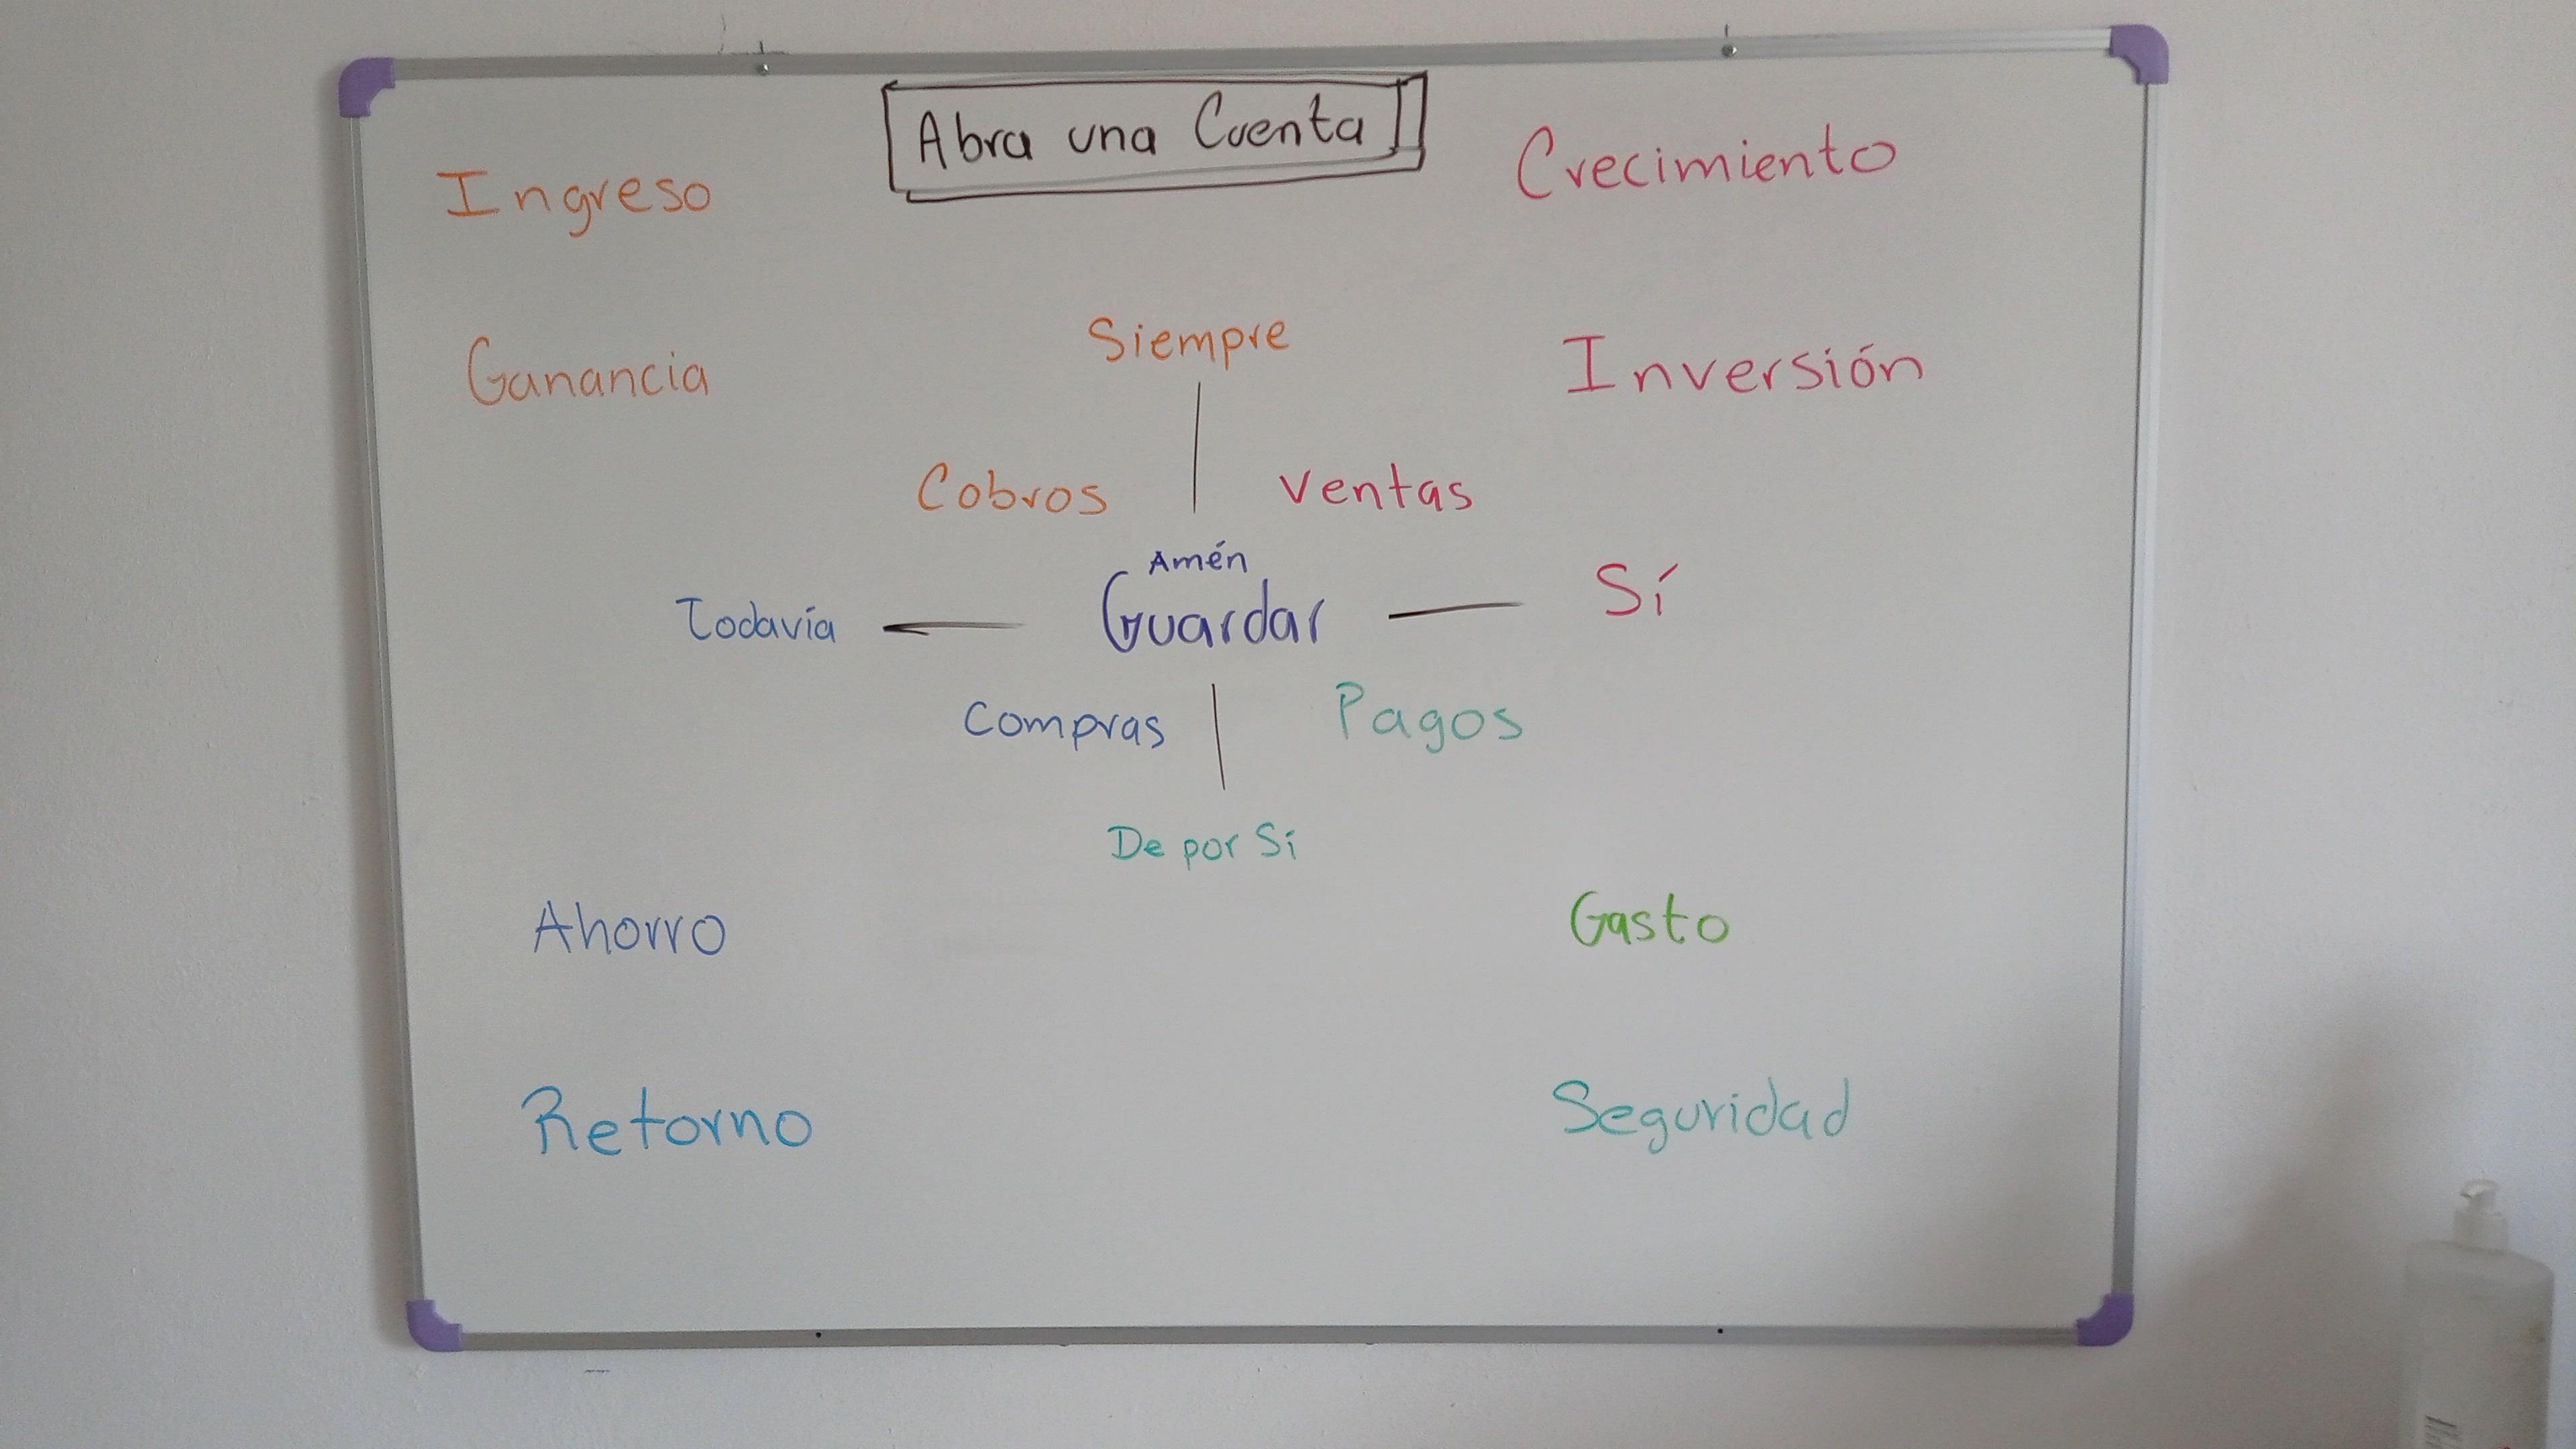 Abra una Cuenta
Ingreso
Crecimiento
Ganancia
Siempre
Inversión
Cobros
Ventas
Amén
Todavía
Guardar
Sí
Compras
Pagos
De por Sí
Ahorro
Gasto
Retorno
Seguridad